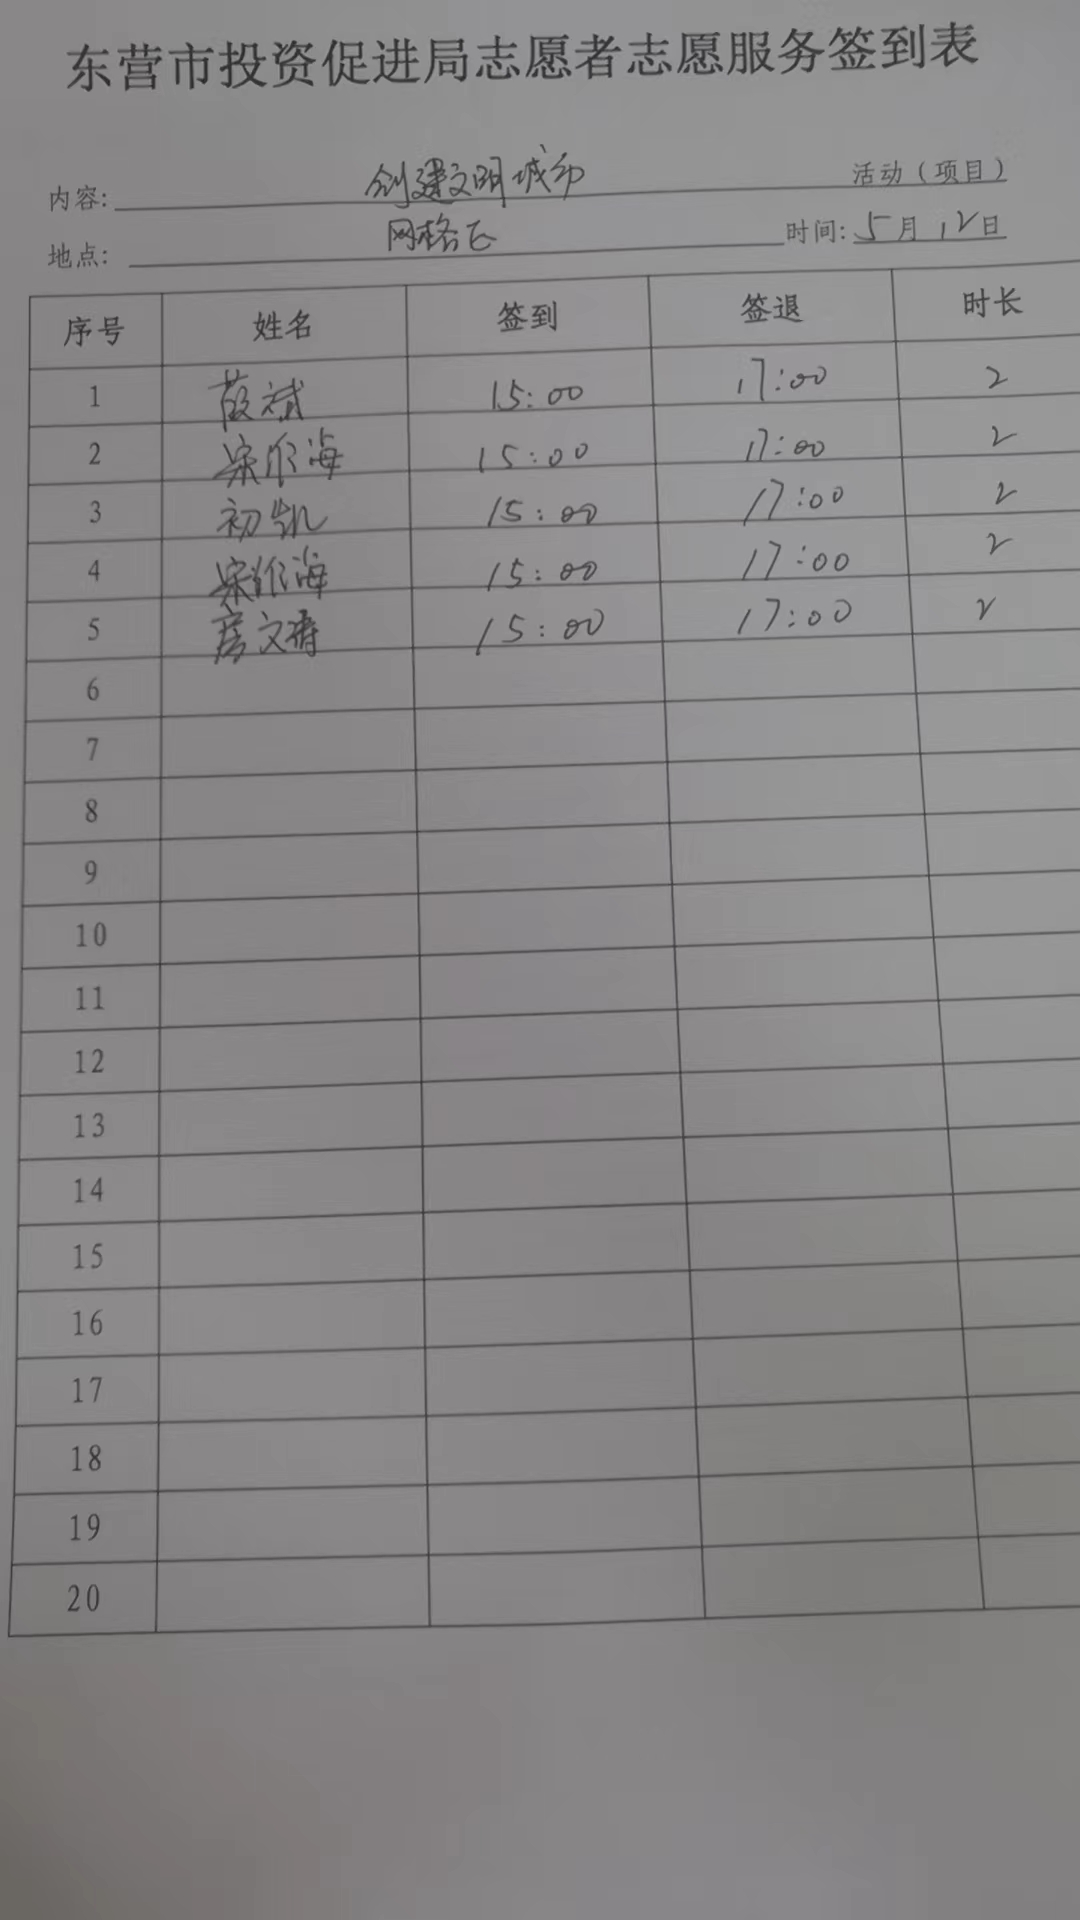 东营市投资促进局志愿者志愿服务签到表
内容: 创建文明城市 活动（项目）
地点: 网格区 时间: 5月12日
序号 姓名 签到 签退 时长
1 斌 15:00 17:00 2
2 宋 海 15:00 17:00 2
3 初凯 15:00 17:00 2
4 宋 海 15:00 17:00 2
5 文 15:00 17:00 2
6
7
8
9
10
11
12
13
14
15
16
17
18
19
20